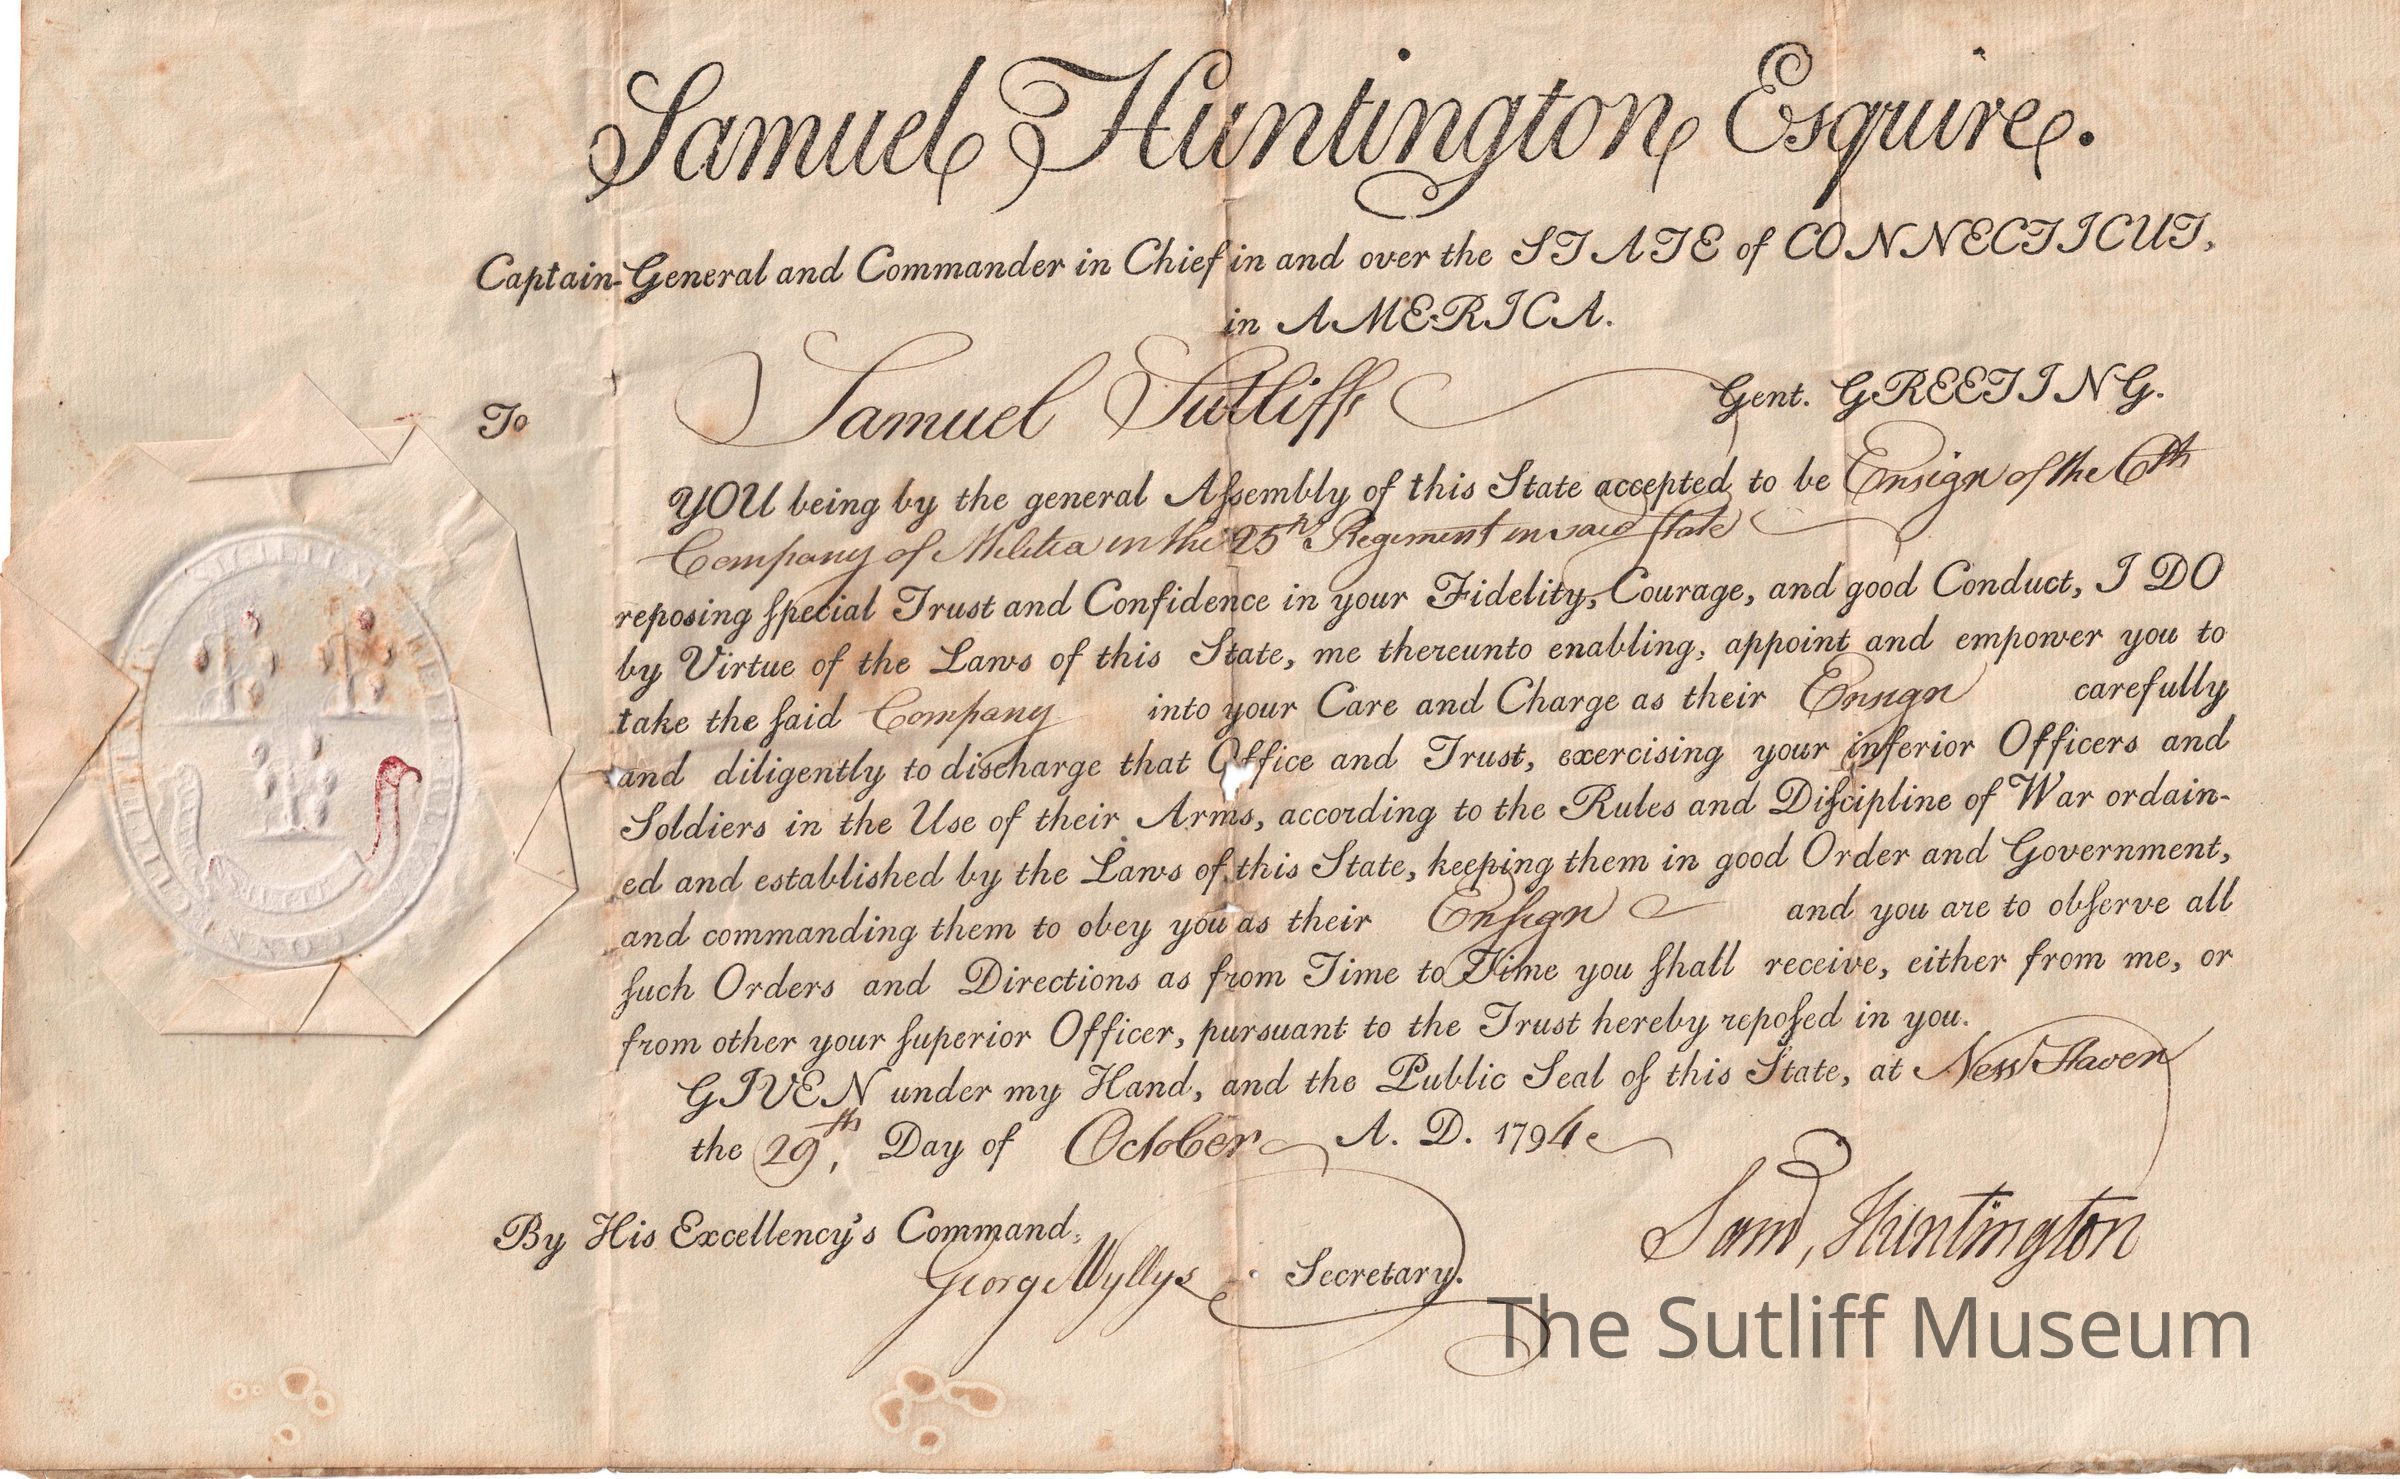 Samuel Huntington Esquire.
Captain-General and Commander in Chief in and over the STATE of CONNECTICUT,
in AMERICA.
To Samuel Sutliff Gent. GREETING.
YOU being by the general Aſsembly of this State accepted to be Ensign of the 6th
Company of Militia in the 25th Regiment in said State
reposing ſpecial Trust and Confidence in your Fidelity, Courage, and good Conduct, I DO
by Virtue of the Laws of this State, me thereunto enabling, appoint and empower you to
take the ſaid Company into your Care and Charge as their Ensign carefully
and diligently to discharge that Office and Trust, exercising your inferior Officers and
Soldiers in the Use of their Arms, according to the Rules and Diſcipline of War ordain-
ed and established by the Laws of this State, keeping them in good Order and Government,
and commanding them to obey you as their Enſign and you are to obſerve all
ſuch Orders and Directions as from Time to Time you ſhall receive, either from me, or
from other your ſuperior Officer, pursuant to the Trust hereby repoſed in you.
GIVEN under my Hand, and the Public Seal of this State, at New Haven
the 29th, Day of October A. D. 1794
By His Excellency's Command,
George Wyllys Secretary.
Saml, Huntington
The Sutliff Museum